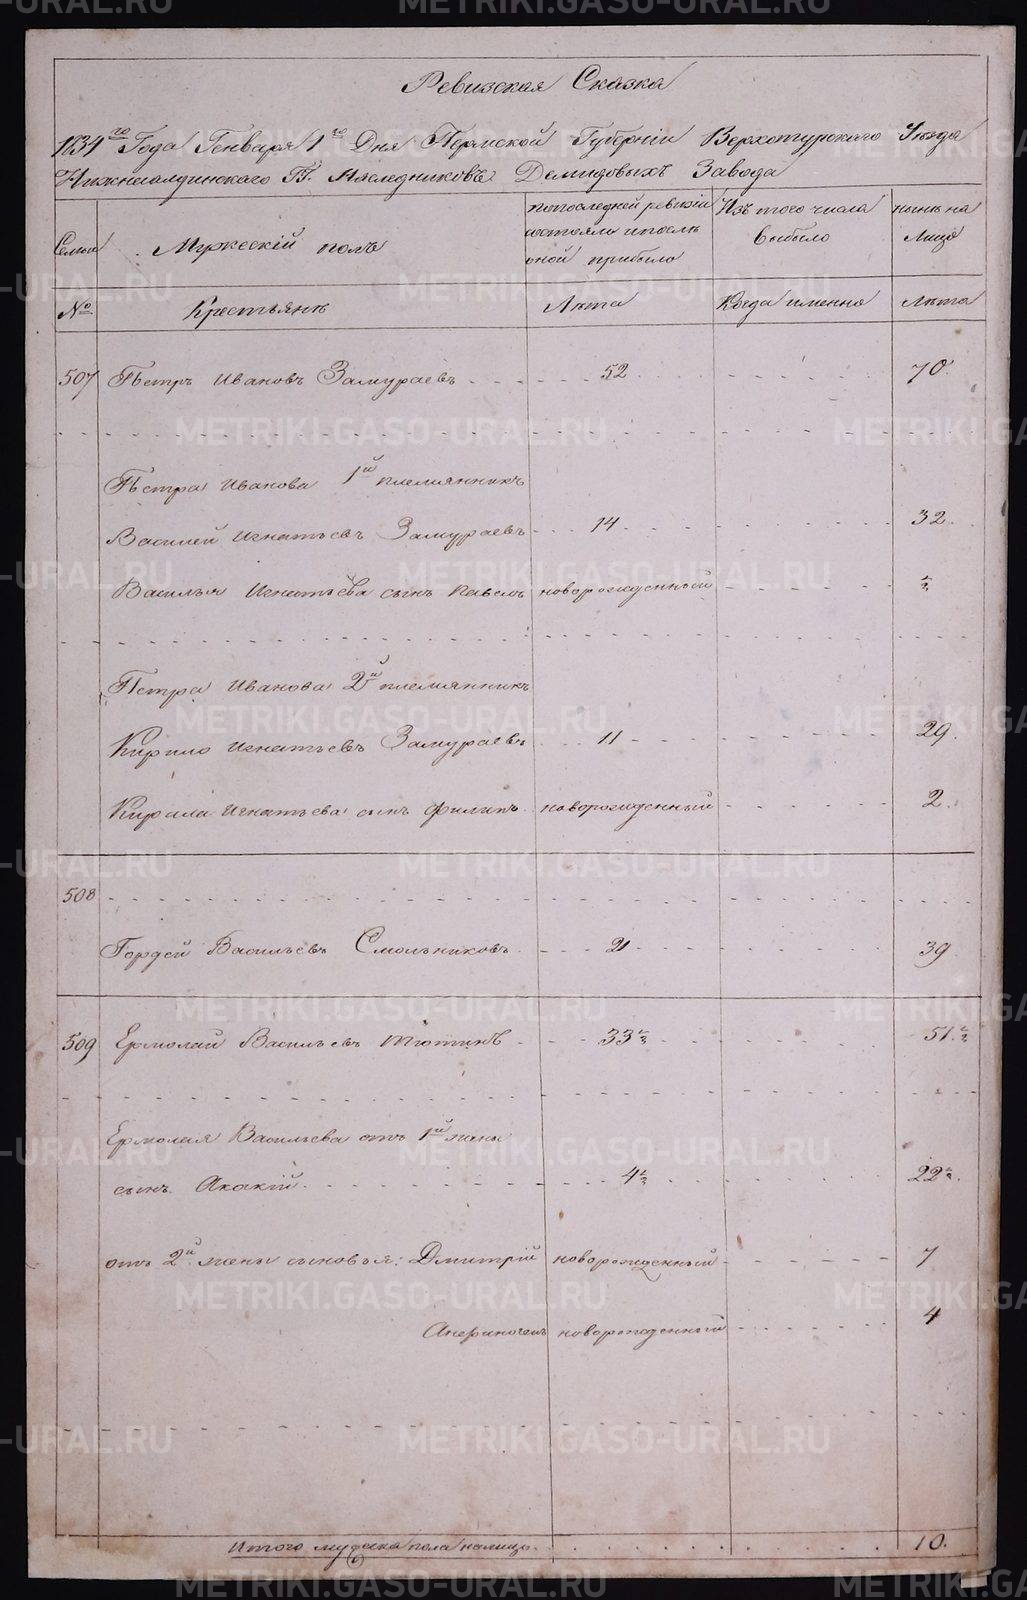 Ревизская Сказка
1834го Года Генваря 1го Дня Пермской Губерніи Верхотурскаго Уезда
Нижнесалдинскаго ГГ. Наследниковъ Демидовыхъ Завода
Семьи Мужескій полъ
попоследней ревизіи состояло ипосле оной прибыло
Изъ того числа выбыло
ныне на Лицо
№ Крестьяне Лета Когда именно Лета
507 Петръ Ивановъ Замураевъ 52 70
Петра Иванова 1й племянникъ
Василей Игнатьевъ Замураевъ 14 32
Василья Игнатьева сынъ Павелъ новорожденный ½
Петра Иванова 2й племянникъ
Кирило Игнатьевъ Замураевъ 11 29
Кирила Игнатьева сынъ Филипъ новорожденный 2
508
Гордей Васильевъ Смольниковъ 21 39
509 Ермолай Васильевъ Тютинъ 33½ 51½
Ермолая Васильева отъ 1й жены
сынъ Акакій 4½ 22½
отъ 2й жены сыновья: Дмитрій новорожденный 7
новорожденный 4
Итого мужеска пола налицо 10.
METRIKI.GASO-URAL.RU